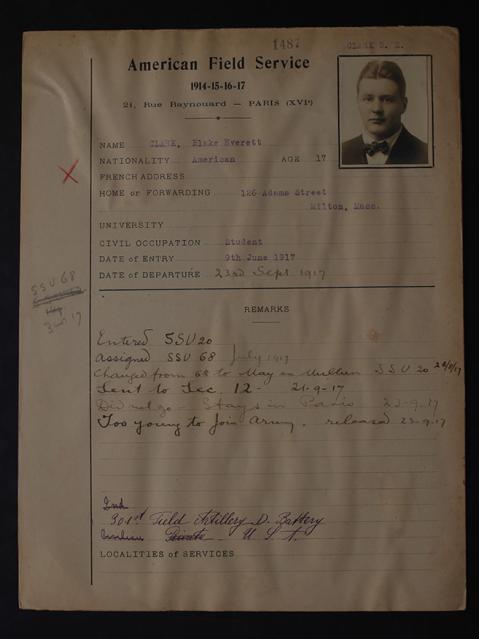 1487
CLARK B. E.
American Field Service
1914-15-16-17
21, Rue Raynouard — PARIS (XVIe)
NAME CLARK, Blake Everett
NATIONALITY American AGE 17
FRENCH ADDRESS
HOME or FORWARDING 126 Adams Street
Milton, Mass.
UNIVERSITY
CIVIL OCCUPATION Student
DATE of ENTRY 9th June 1917
DATE of DEPARTURE 23rd Sept. 1917
SSU 68
17
REMARKS
Entered SSU 20
Assigned SSU 68 July 1917
Changed from 68 to May en Multien SSU 20
Sent to Sec. 12 - 21-9-17
Did not go - Stays in Paris 22-9-17
Too young to join Army. released 23-9-17
301st Field Artillery D. Battery
Private U S A.
LOCALITIES of SERVICES